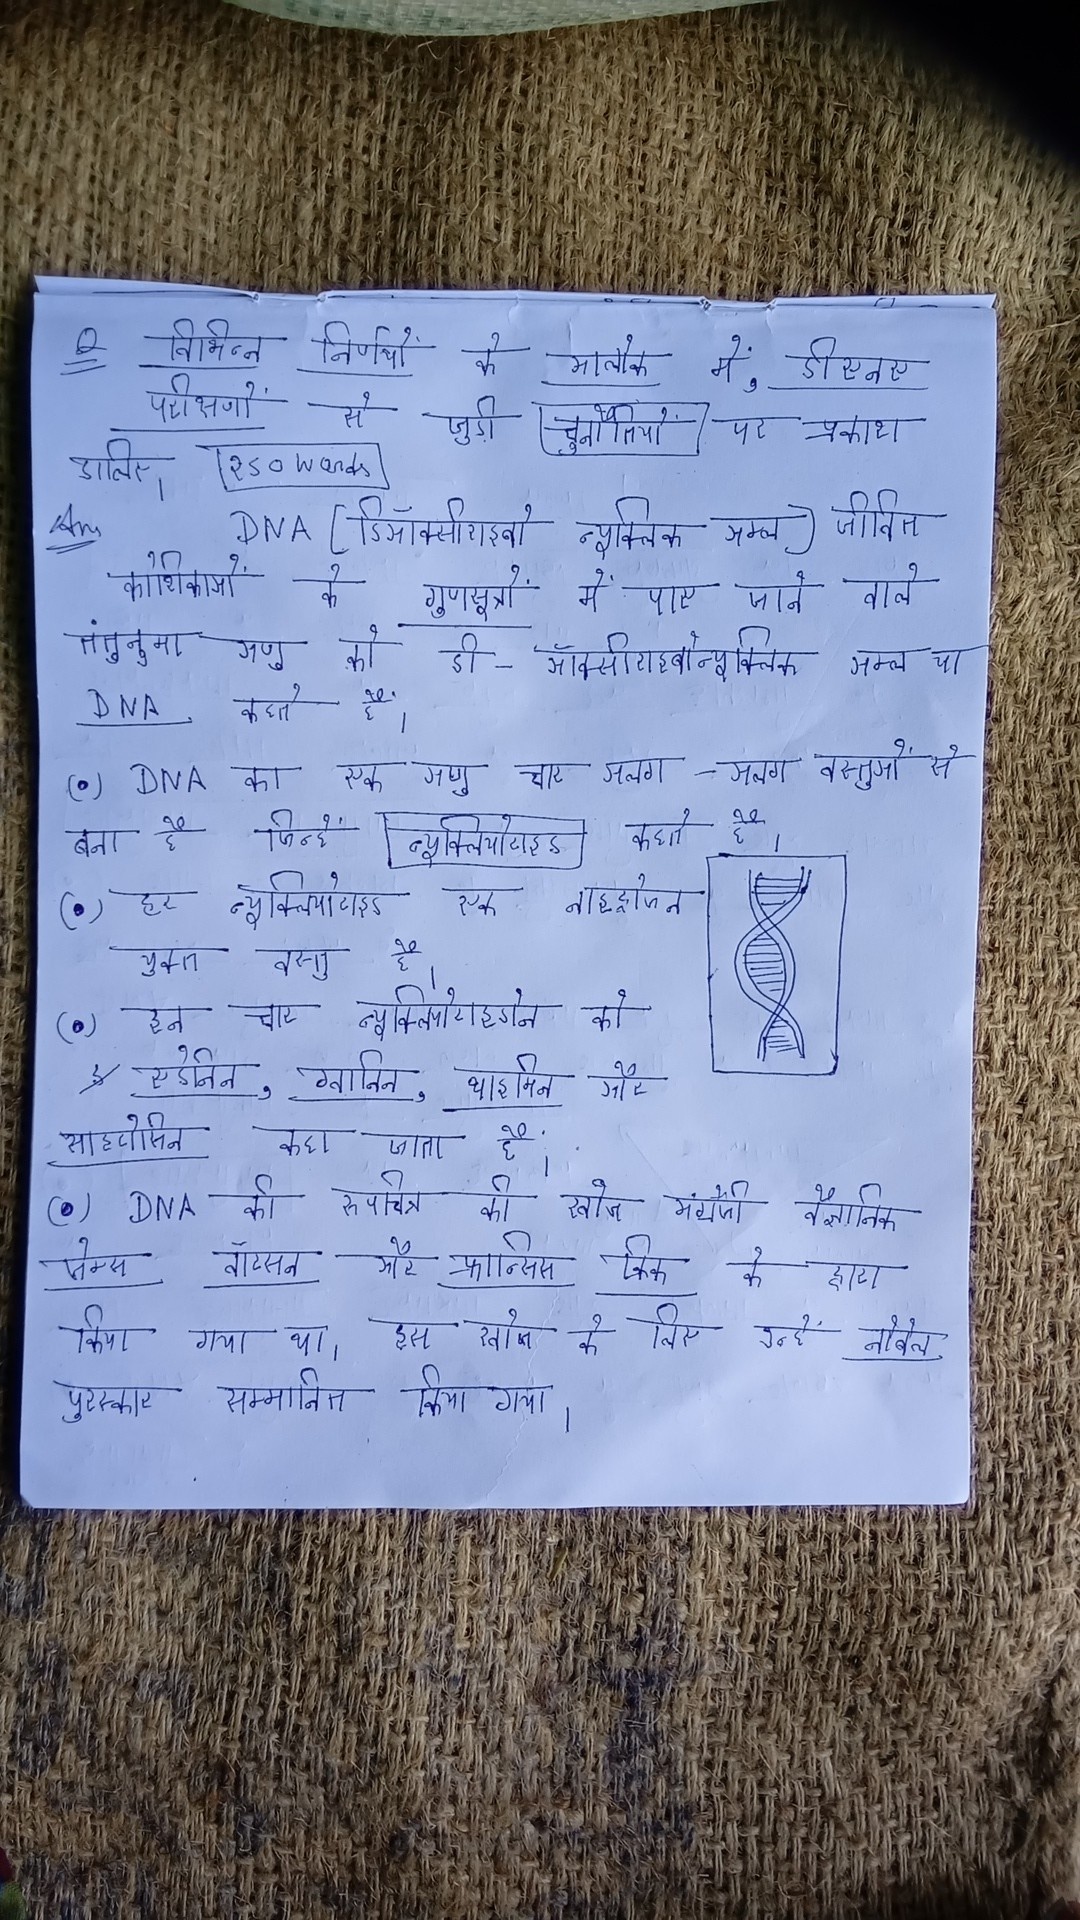 Q विभिन्न निर्णयों के आलोक में, डीएनए
परीक्षणों से जुड़ी चुनौतियों पर प्रकाश
डालिए। 250 words
Ans DNA (डिऑक्सीराइबो न्यूक्लिक अम्ल) जीवित
कोशिकाओं के गुणसूत्रों में पाए जाने वाले
तंतुनुमा अणु को डी - ऑक्सीराइबोन्यूक्लिक अम्ल या
DNA कहते हैं।
(•) DNA का एक अणु चार अलग - अलग वस्तुओं से
बना है जिन्हें न्यूक्लियोटाइड कहते हैं।
(•) हर न्यूक्लियोटाइड एक नाइट्रोजन
युक्त वस्तु है।
(•) इन चार न्यूक्लियोटाइडोन को
एडेनिन, ग्वानिन, थाइमिन और
साइटोसिन कहा जाता है।
(•) DNA की रूपचित्र की खोज अंग्रेजी वैज्ञानिक
जेम्स वॉटसन और फ्रान्सिस क्रिक के द्वारा
किया गया था। इस खोज के लिए उन्हें नोबेल
पुरस्कार सम्मानित किया गया।